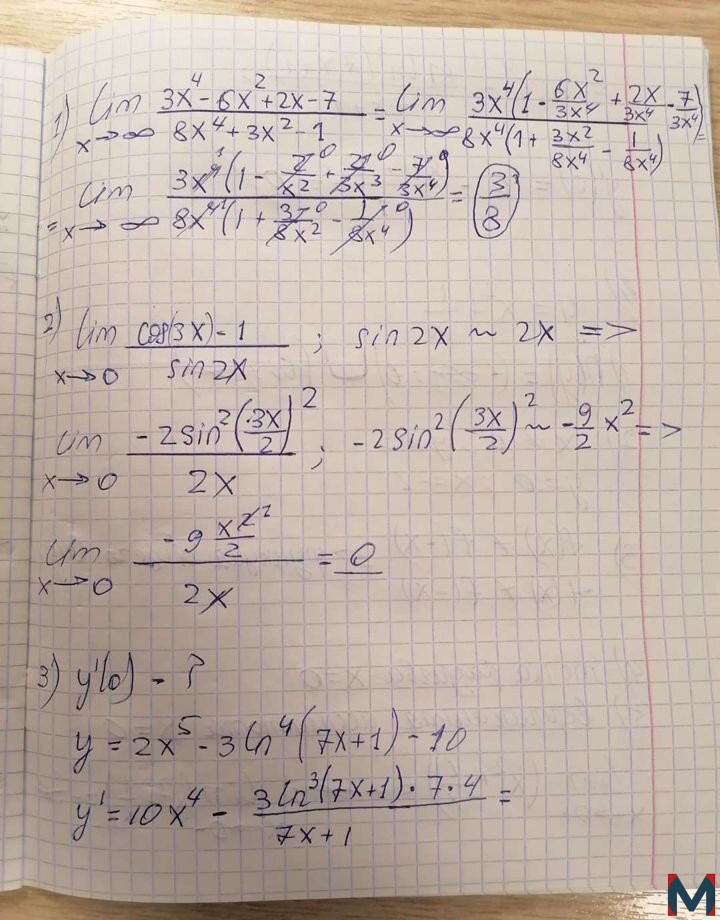 1) lim x→∞ (3x⁴ - 6x² + 2x - 7)/(8x⁴ + 3x² - 1) = lim x→∞ (3x⁴(1 - 6x²/3x⁴ + 2x/3x⁴ - 7/3x⁴))/(8x⁴(1 + 3x²/8x⁴ - 1/8x⁴)) =
= lim x→∞ (3x⁴(1 - 2/x² + 2/3x³ - 7/3x⁴))/(8x⁴(1 + 3/8x² - 1/8x⁴)) = 3/8
2) lim x→0 (cos(3x) - 1)/(sin2x) ; sin2x ~ 2x =>
lim x→0 (-2sin²(3x/2)²)/(2x) ; -2sin²(3x/2)² ~ -9/2 x² =>
lim x→0 (-9 x²/2)/(2x) = 0
3) y'(0) - ?
y = 2x⁵ - 3ln⁴(7x+1) - 10
y' = 10x⁴ - (3ln³(7x+1)·7·4)/(7x+1) =
M